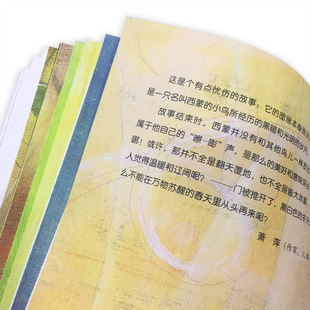 这是个有点忧伤的故事；它的图画本身
是一只名叫西蒙的小鸟所经历的黑暗和光明的岁月
故事结束时，西蒙并没有和其他鸟儿一样
属于他自己的“嘭 嘭”声，是那么的美好和
嘭！或许，那并不全是翻天覆地，也不全是
人觉得温暖和辽阔呢？——门被推开了，黑白色的冬
么不能在万物苏醒的春天里从头再来呢？
萧 萍（作家、儿童